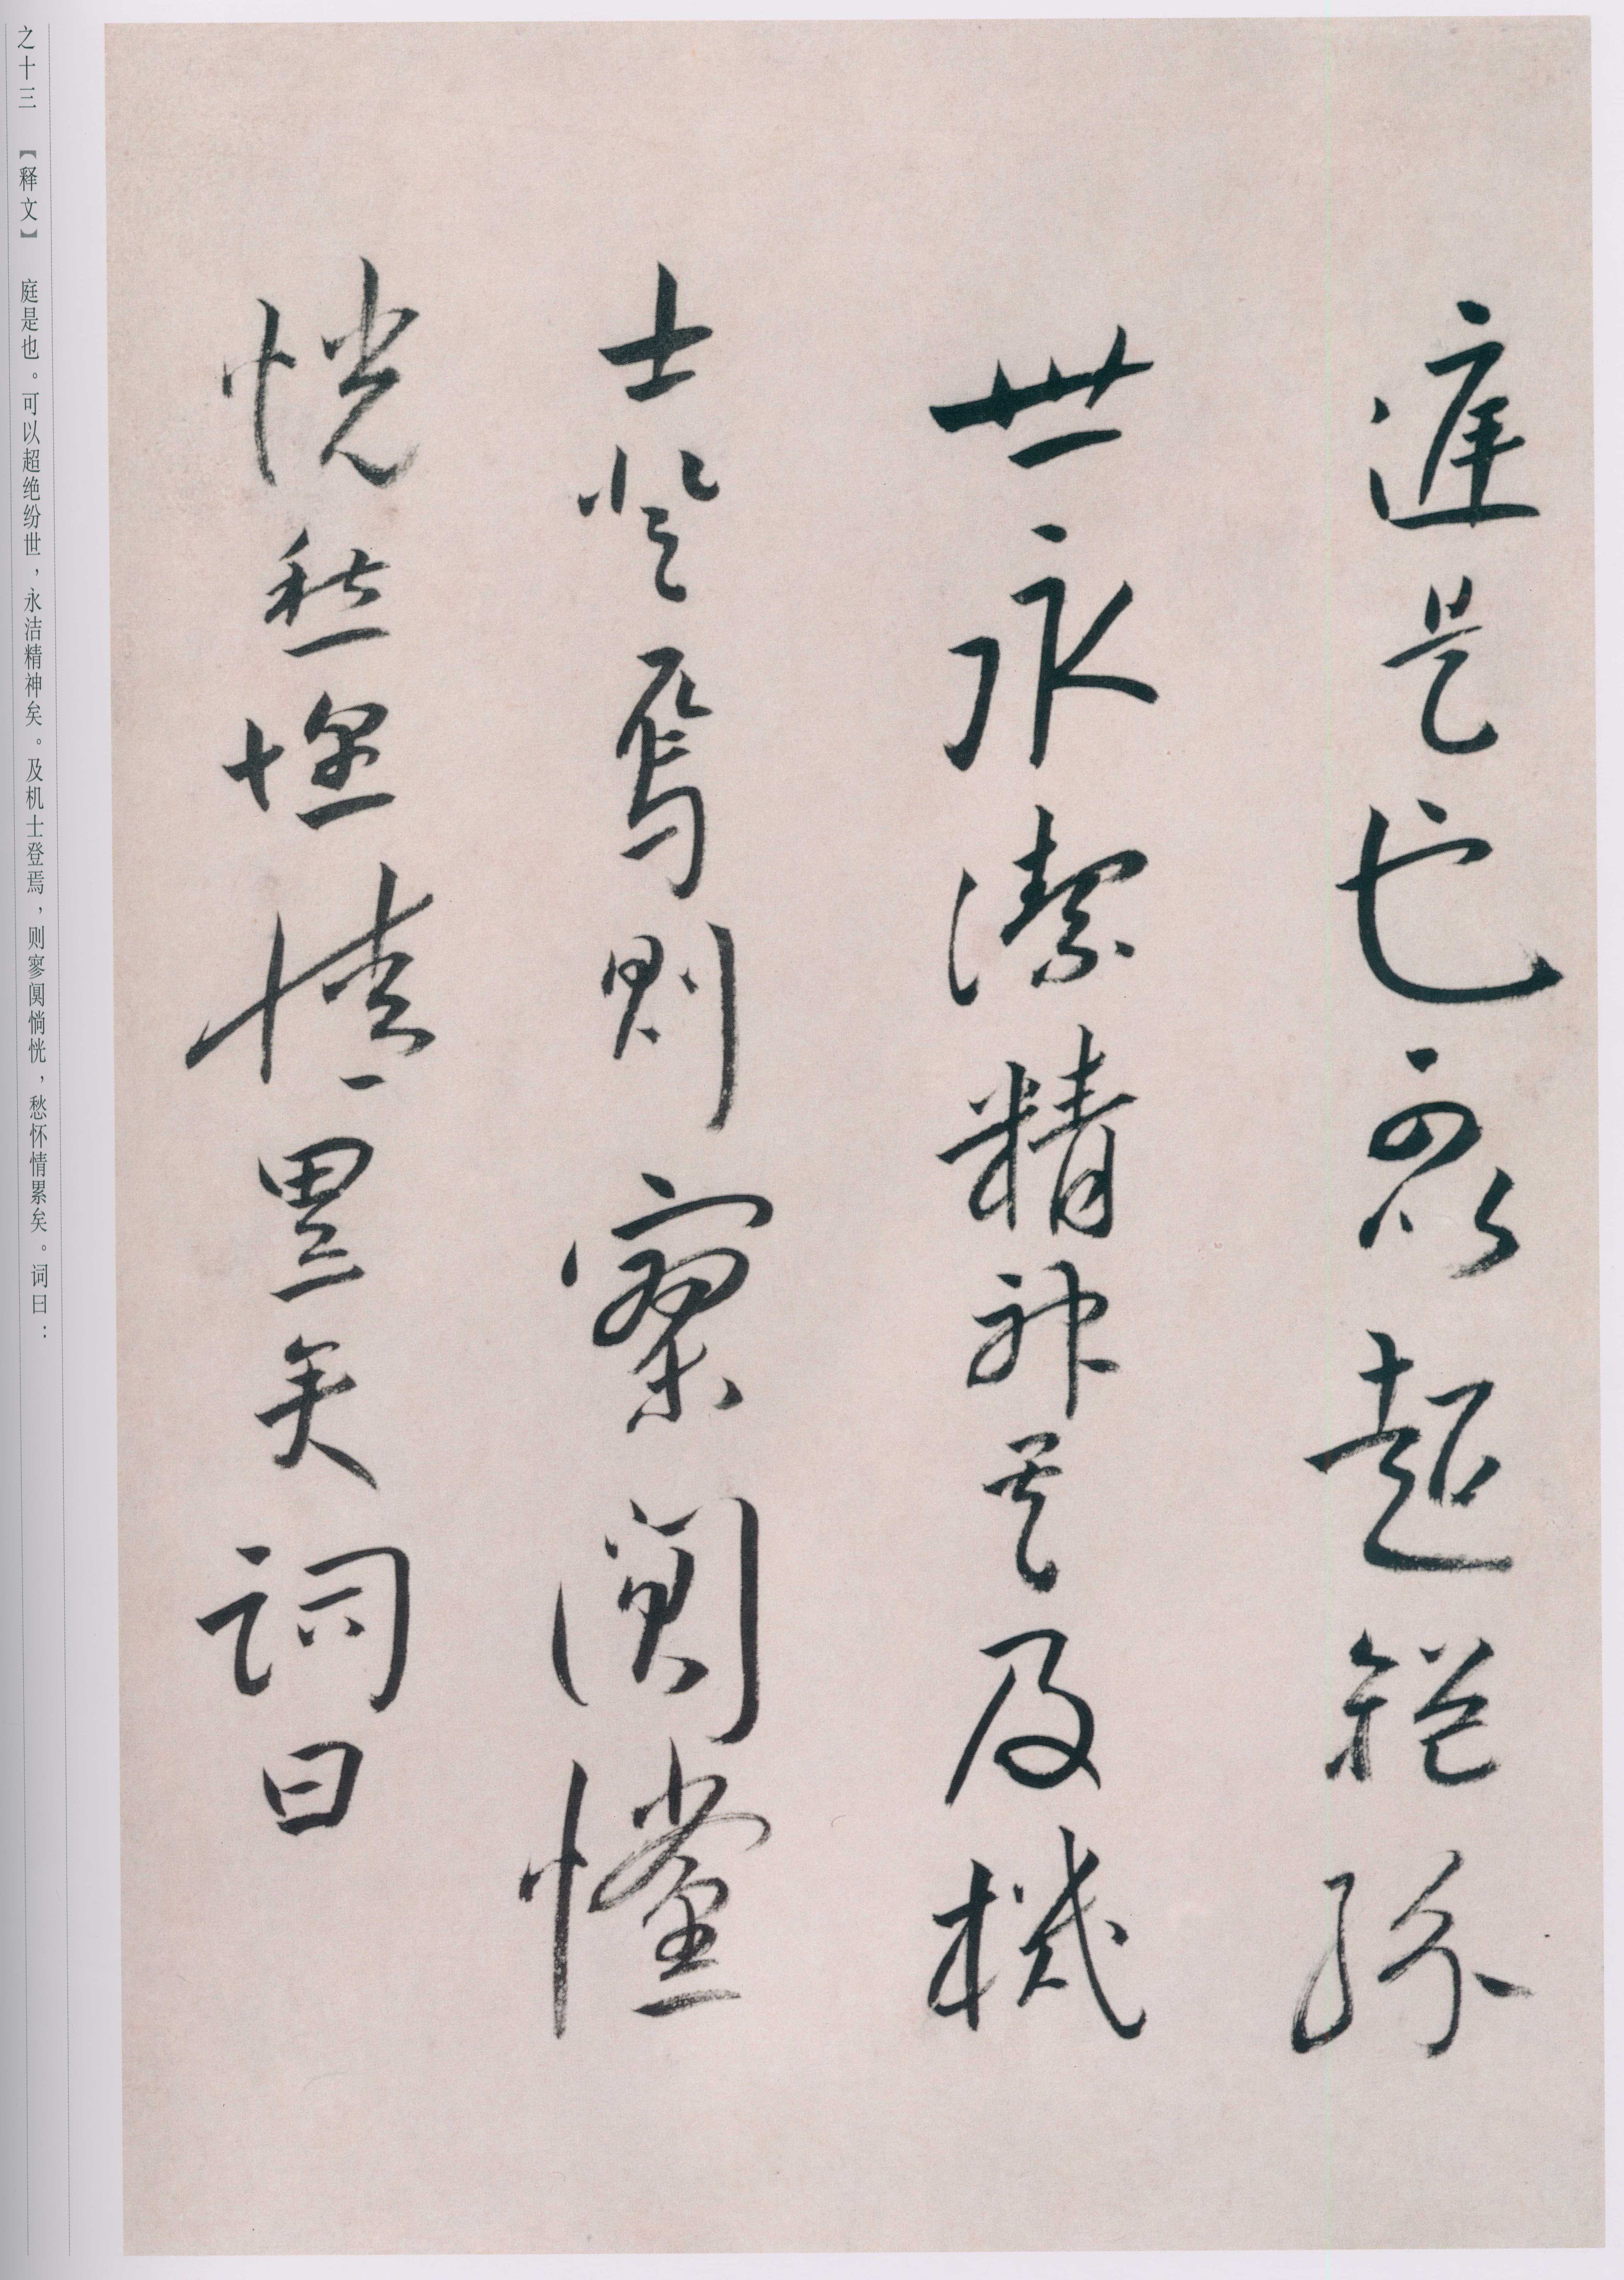 庭是也可以超絕紛
世永潔精神矣及機
士登焉則寥闃戃
恍愁懷情累矣詞曰
之十三 【释文】 庭是也。可以超绝纷世，永洁精神矣。及机士登焉，则寥阒惝恍，愁怀情累矣。词曰：